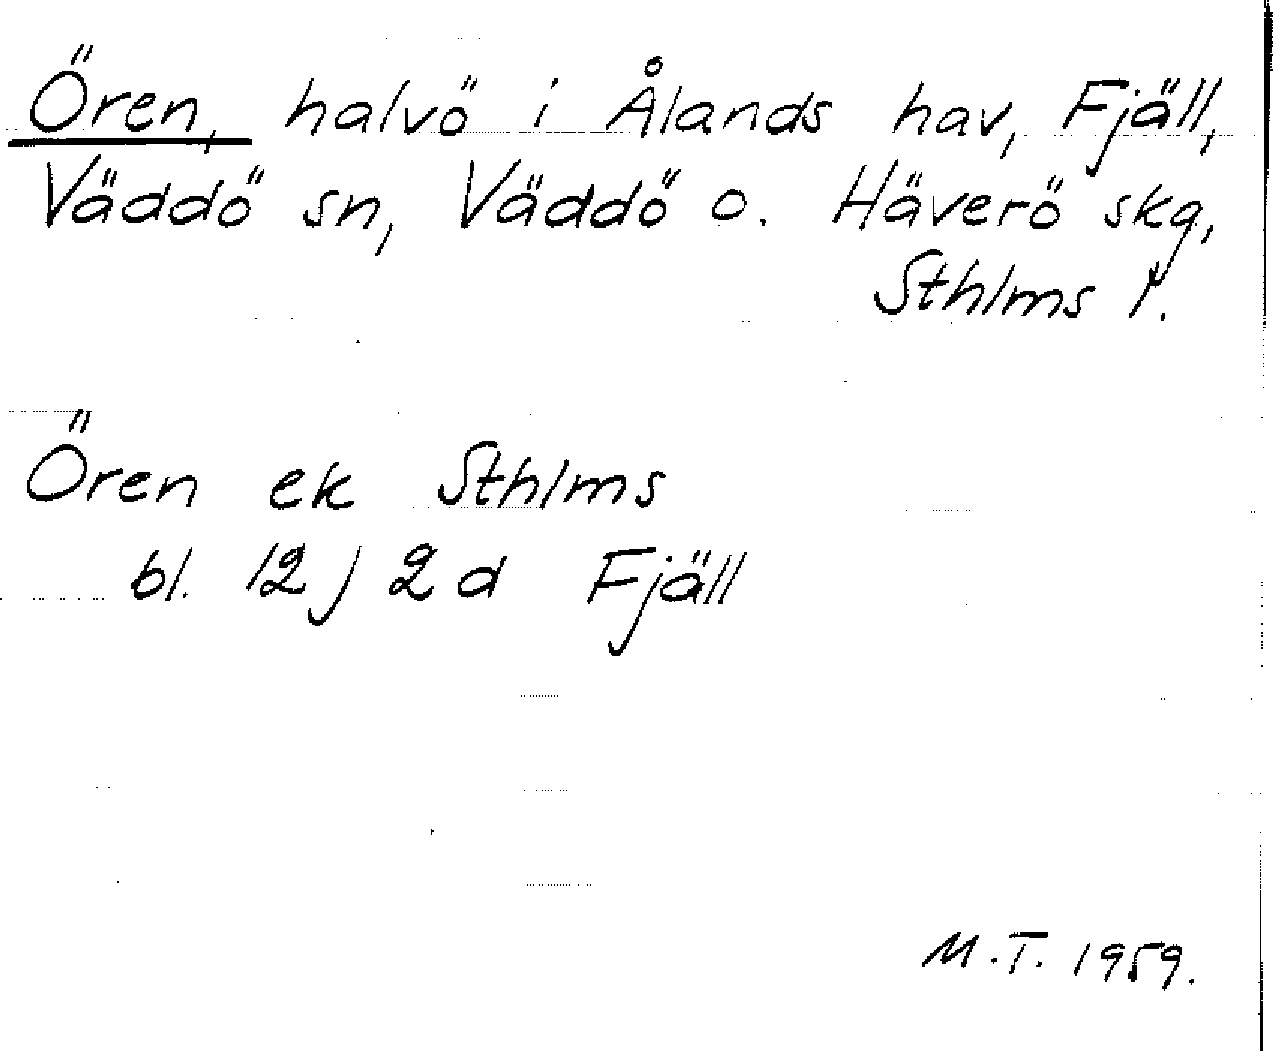 Ören, halvö i Ålands hav, Fjäll,
Väddö sn, Väddö o. Häverö skg,
Sthlms l.
Ören ek Sthlms
bl. 12 J 2 d Fjäll
M.T. 1959.